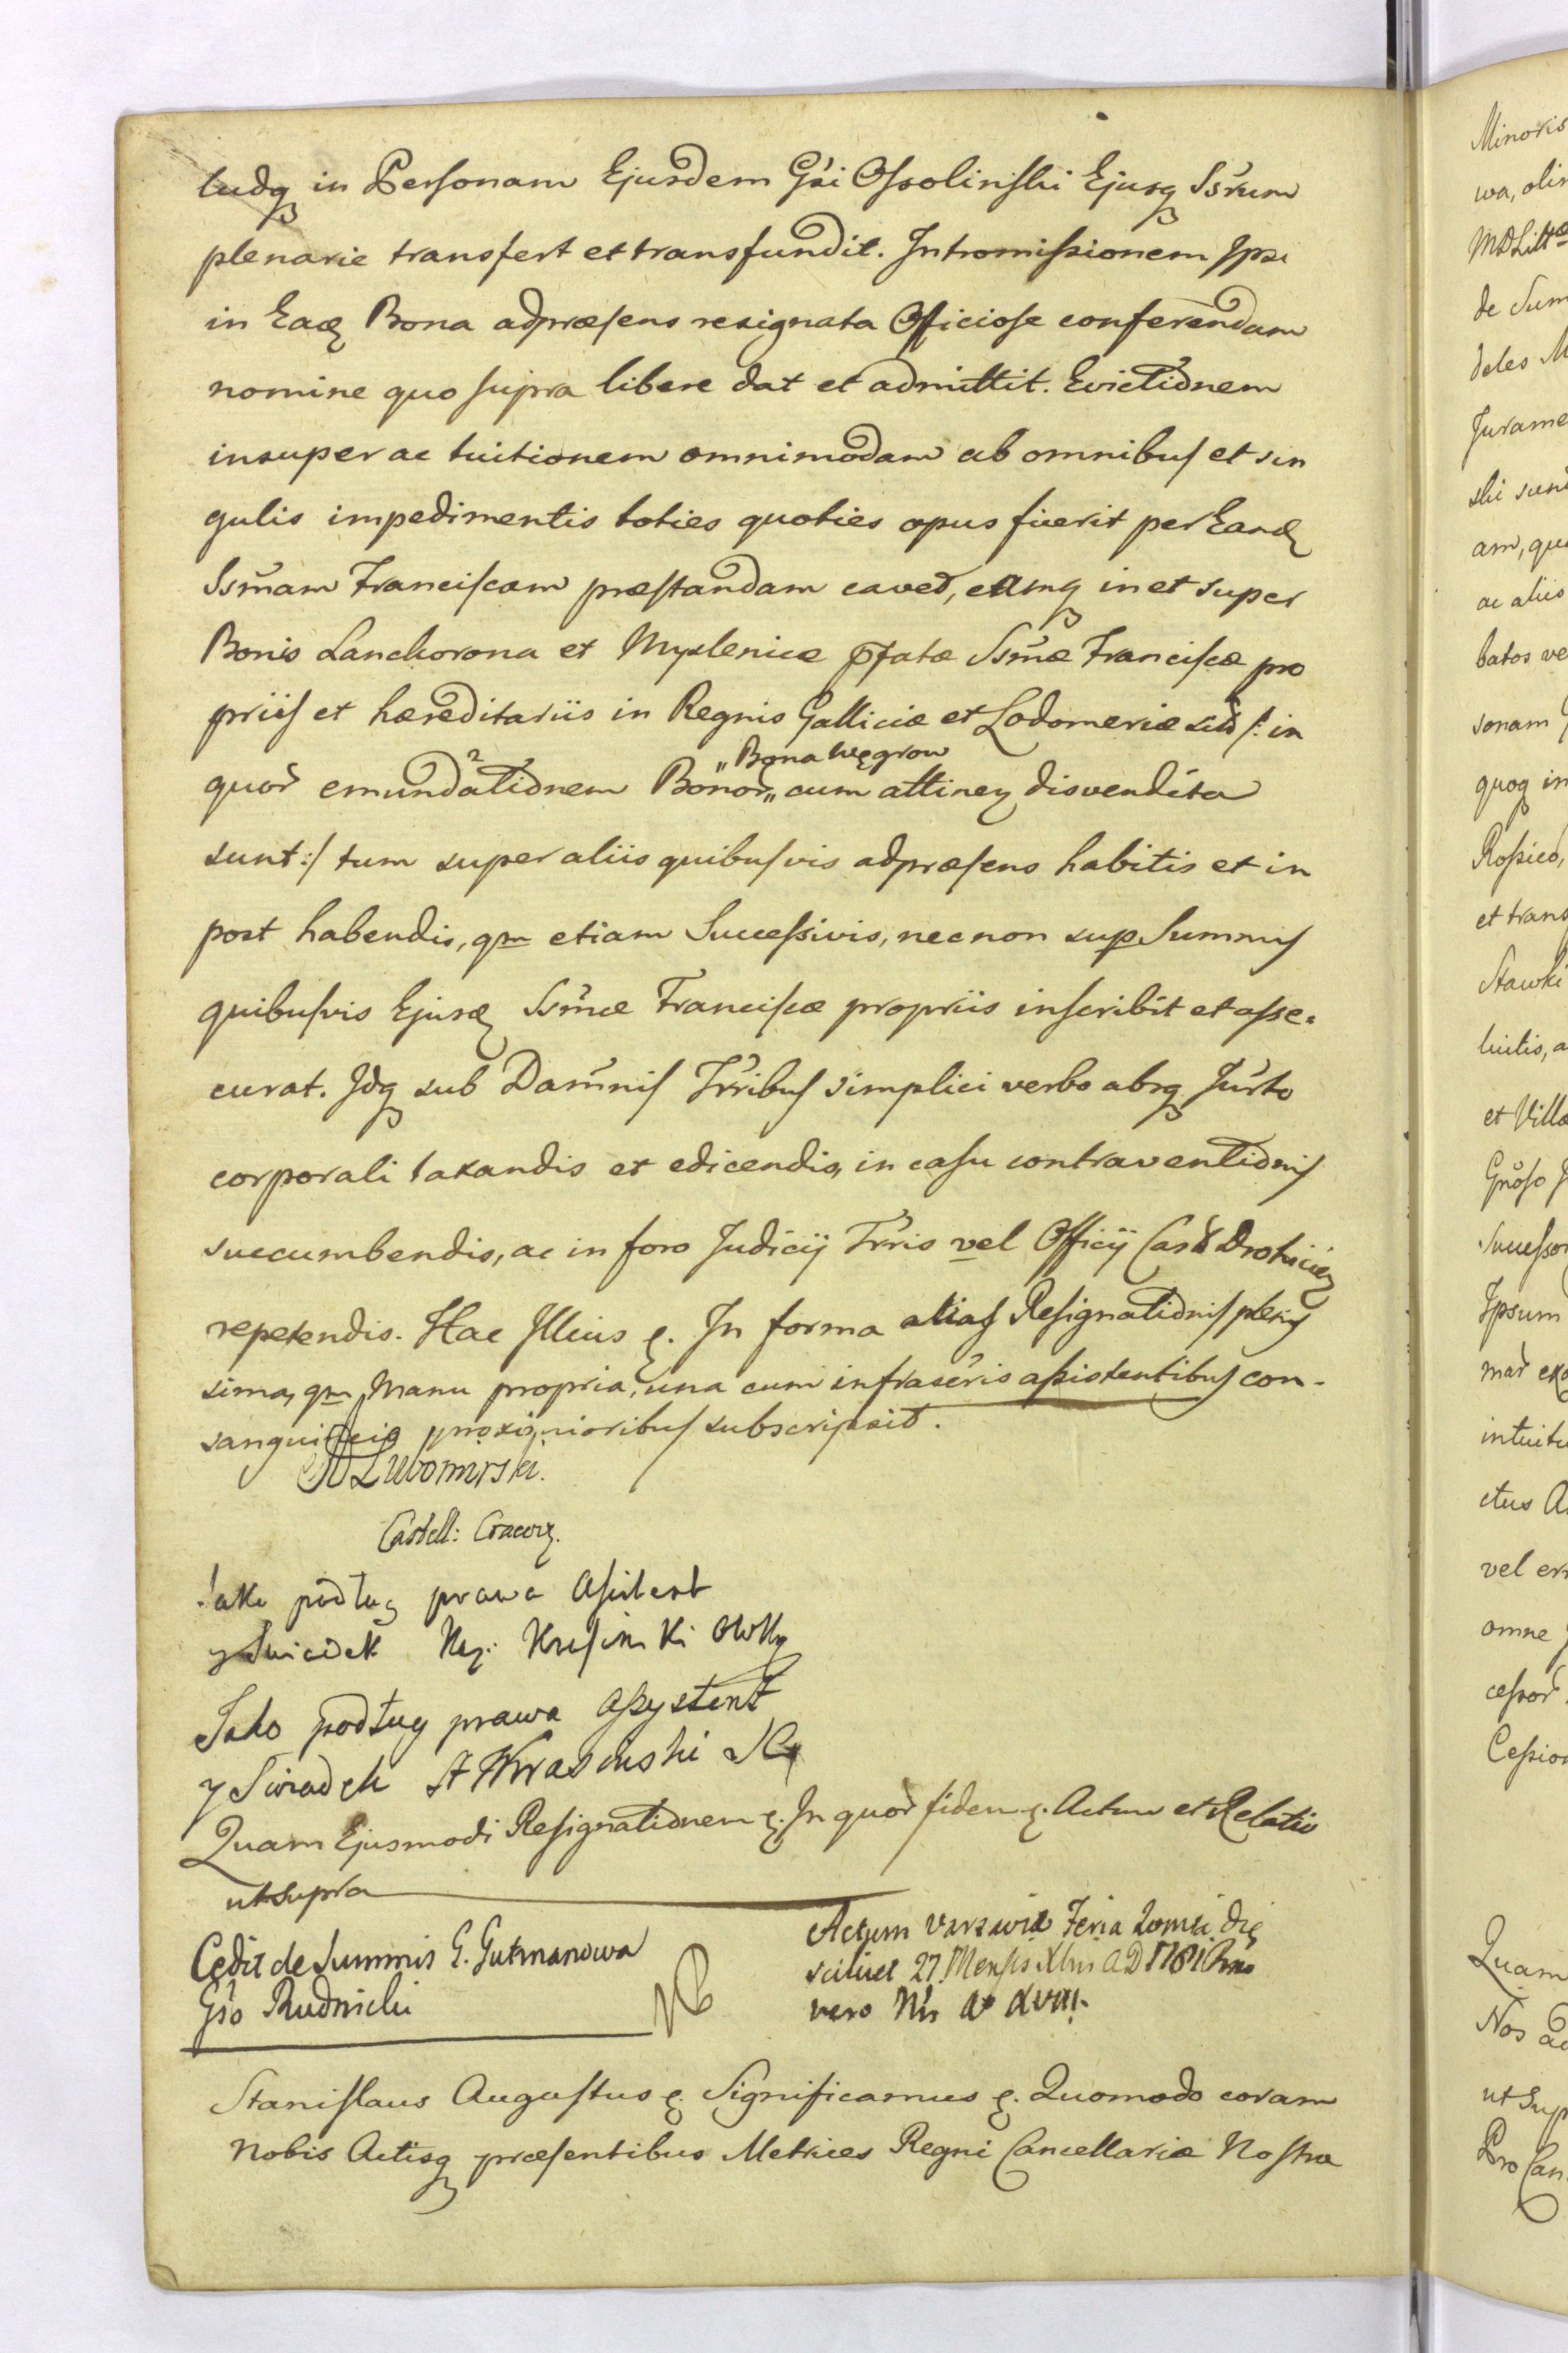 tudq in Personam Ejusdem Gsi Ossolinski Ejusq Ssrum
plenarie transfert et transfundit. Intromissionem Ipsi
in Eaq Bona adpræsens resignata Officiose conferendam
nomine quo supra libere dat et admittit. Evictionem
insuper ac tuitionem omnimodam ab omnibus et sin
gulis impedimentis toties quoties opus fuerit per Eand
Ssmam Franciscam præstandam cavet, eamq in et super
Bonis Lanckorona et Myslenice pfatæ Ssmæ Franciscæ pro
priis et hæreditariis in Regnis Galliciæ et Lodomeriæ sit /: in
„Bona Węgrow
quor emundationem Bonor„ cum attinen disvendita
sunt :/ tum super aliis quibusvis adpræsens habitis et in
post habendis, qm etiam Successivis, necnon sup Summis
quibusvis Ejusd Ssmæ Franciscæ propriis inscribit et asse-
curat. Idq sub Damnis Trribus simplici verbo absq Jurto
corporali taxandis et edicendis, in casu contraventionis
succumbendis, ac in foro Judicij Trris vel Officij Cas Drohicien
repetendis. Hac Illius ę. In forma alias Resignationis pleni
sima, qm Manu propria, una cum infrascris assistentibus con-
sanguineis proximioribus subscripsit.
A Lubomirski.
Castell: Cracov.
Jako podług prawa Asistent
y Swiadek Krasinski OWK
Jako podług prawa assystent
y Swiadek Krasinski
Quam Ejusmodi Resignationem ę. In quor fidem ę. Actum et Relatio
ut supra
Cedit de Summis G. Gutmanowa
Gso Rudnicki
Actum Varsaviæ Feria 2da die
scilicet 27 Mensis Xbris AD 1781
vero Nri Ao XVIII.
Stanislaus Augustus ę. Significamus ę. Quomodo coram
Nobis Actisq præsentibus Metrices Regni Cancellariæ Nostræ
Minoris
wa, olim
de Sum
deles M
Jurame
ski sunt
am, que
ac aliis
batos ve
sonam G
quoq in
Rossico,
et trans
Stawki
luitis, a
et Villa
Gnoso
Successor
Ipsum
intuitu
ctus A
vel err
omne
cessor
Cession
Quam
Nos ad
ut Sup
Pro Can